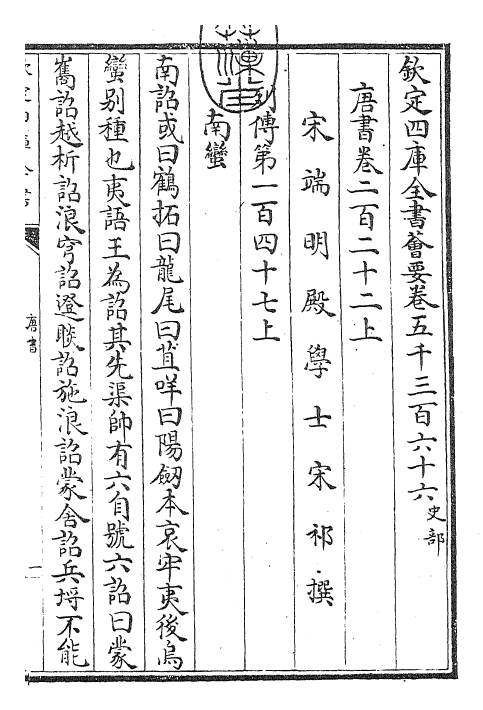 欽定四庫全書薈要卷五千三百六十六史部
唐書卷二百二十二上
宋端明殿學士宋祁撰
列傳第一百四十七上
南蠻
南詔或曰鶴拓曰龍尾曰苴咩曰陽劒本哀牢夷後烏
蠻别種也夷語王為詔其先渠帥有六自號六詔曰蒙
嶲詔越析詔浪穹詔邆睒詔施浪詔蒙舍詔兵埒不能
唐書
一